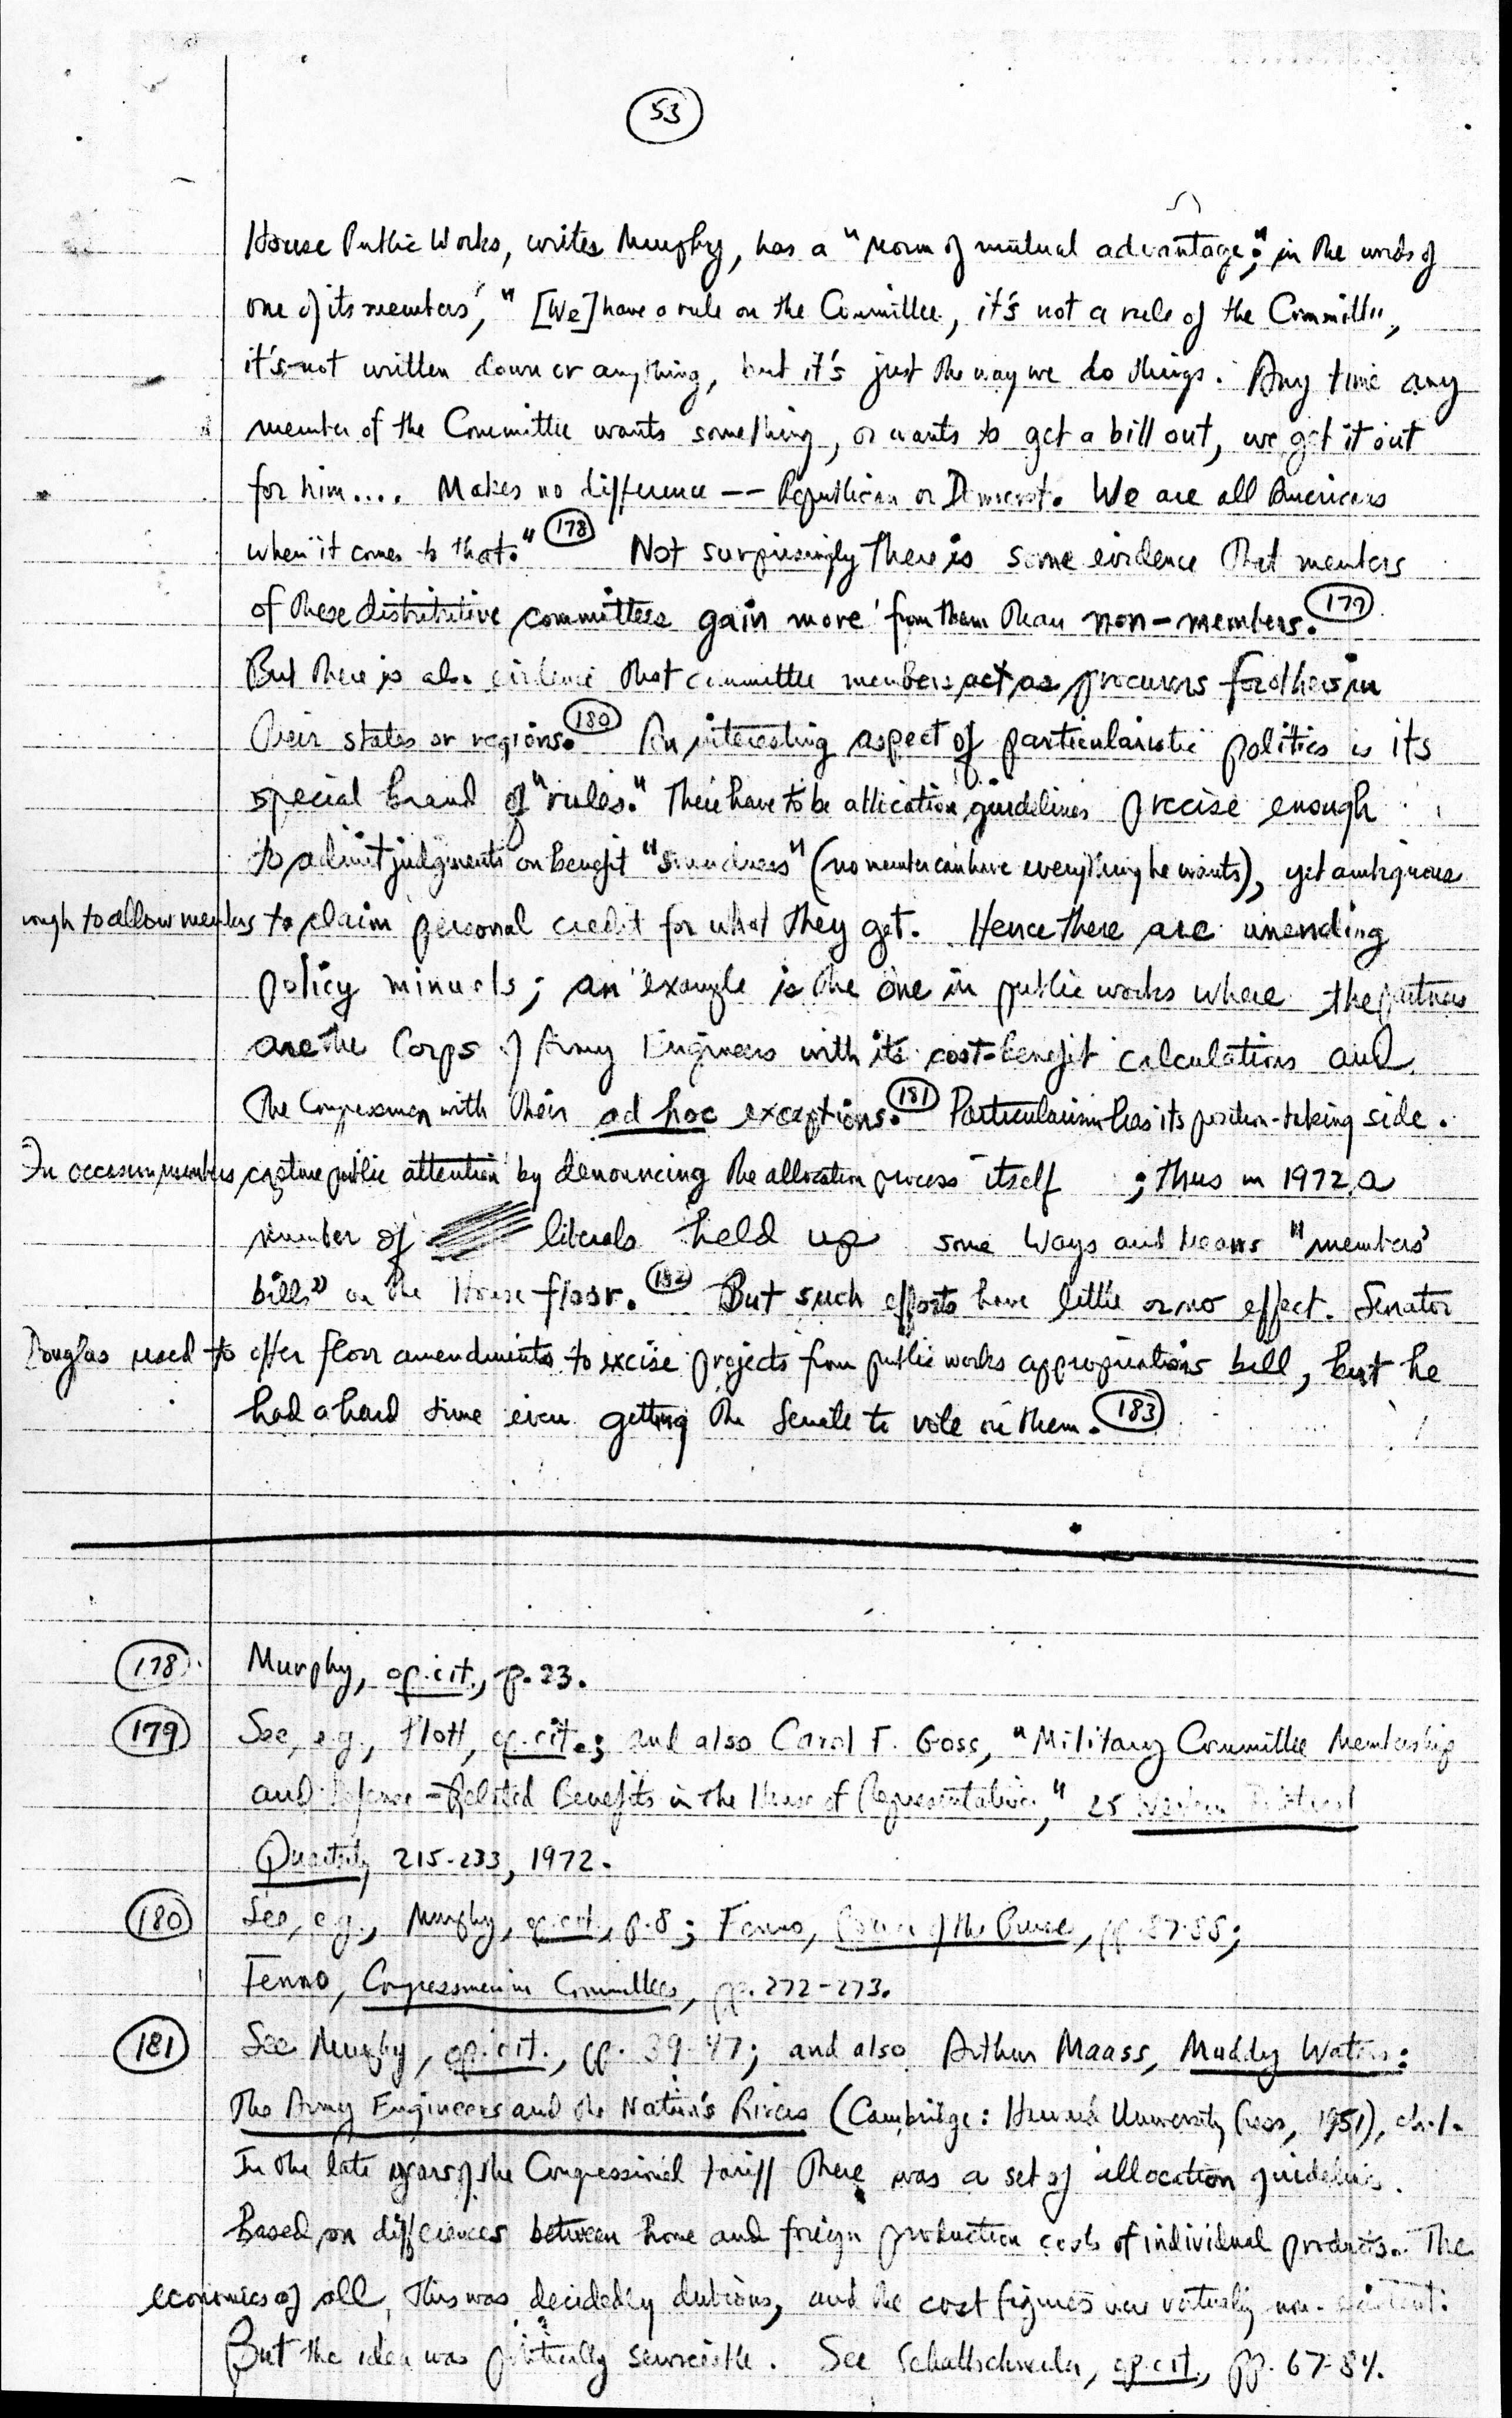 53
House Public Works, writes Murphy, has a "norm of mutual advantage;" in the words of
one of its members, "[We] have a rule on the Committee, it's not a rule of the Committee,
it's not written down or anything, but it's just the way we do things. Any time any
member of the Committee wants something, or wants to get a bill out, we get it out
for him.... Makes no difference -- Republican or Democrat. We are all Americans
when it comes to that." 178 Not surprisingly there is some evidence that members
of these distributive committees gain more from them than non-members. 179
But there is also evidence that committee members act as procurers for others in
their states or regions. 180 An interesting aspect of particularistic politics is its
special brand of "rules." There have to be allocation guidelines precise enough
to admit judgments on benefit "soundness" (no member can have everything he wants), yet ambiguous
enough to allow members to claim personal credit for what they get. Hence there are unending
policy minuets; an example is the one in public works where the partners
are the Corps of Army Engineers with its cost-benefit calculations and
the Congressmen with their ad hoc exceptions. 181 Particularism has its position-taking side.
On occasion members capture public attention by denouncing the allocation process itself ; thus in 1972 a
number of liberals held up some Ways and Means "members'
bills" on the House floor. 182 But such efforts have little or no effect. Senator
Douglas used to offer floor amendments to excise projects from public works appropriations bill, but he
had a hard time even getting the Senate to vote on them. 183
178 Murphy, op. cit., p. 23.
179 See, e.g., Plott, op. cit.; and also Carol F. Goss, "Military Committee Membership
and Defense-Related Benefits in the House of Representatives," 25 Western Political
Quarterly 215-233, 1972.
180 See, e.g., Murphy, op. cit., p. 8; Fenno, Power of the Purse, pp. 87-88;
Fenno, Congressmen in Committees, pp. 272-273.
181 See Murphy, op. cit., pp. 39-47; and also Arthur Maass, Muddy Waters:
The Army Engineers and the Nation's Rivers (Cambridge: Harvard University Press, 1951), ch. 1.
In the late years of the Congressional tariff there was a set of allocation guidelines
based on differences between home and foreign production costs of individual products. The
economics of all this was decidedly dubious, and the cost figures were virtually non-existent.
But the idea was politically serviceable. See Schattschneider, op. cit., pp. 67-84.